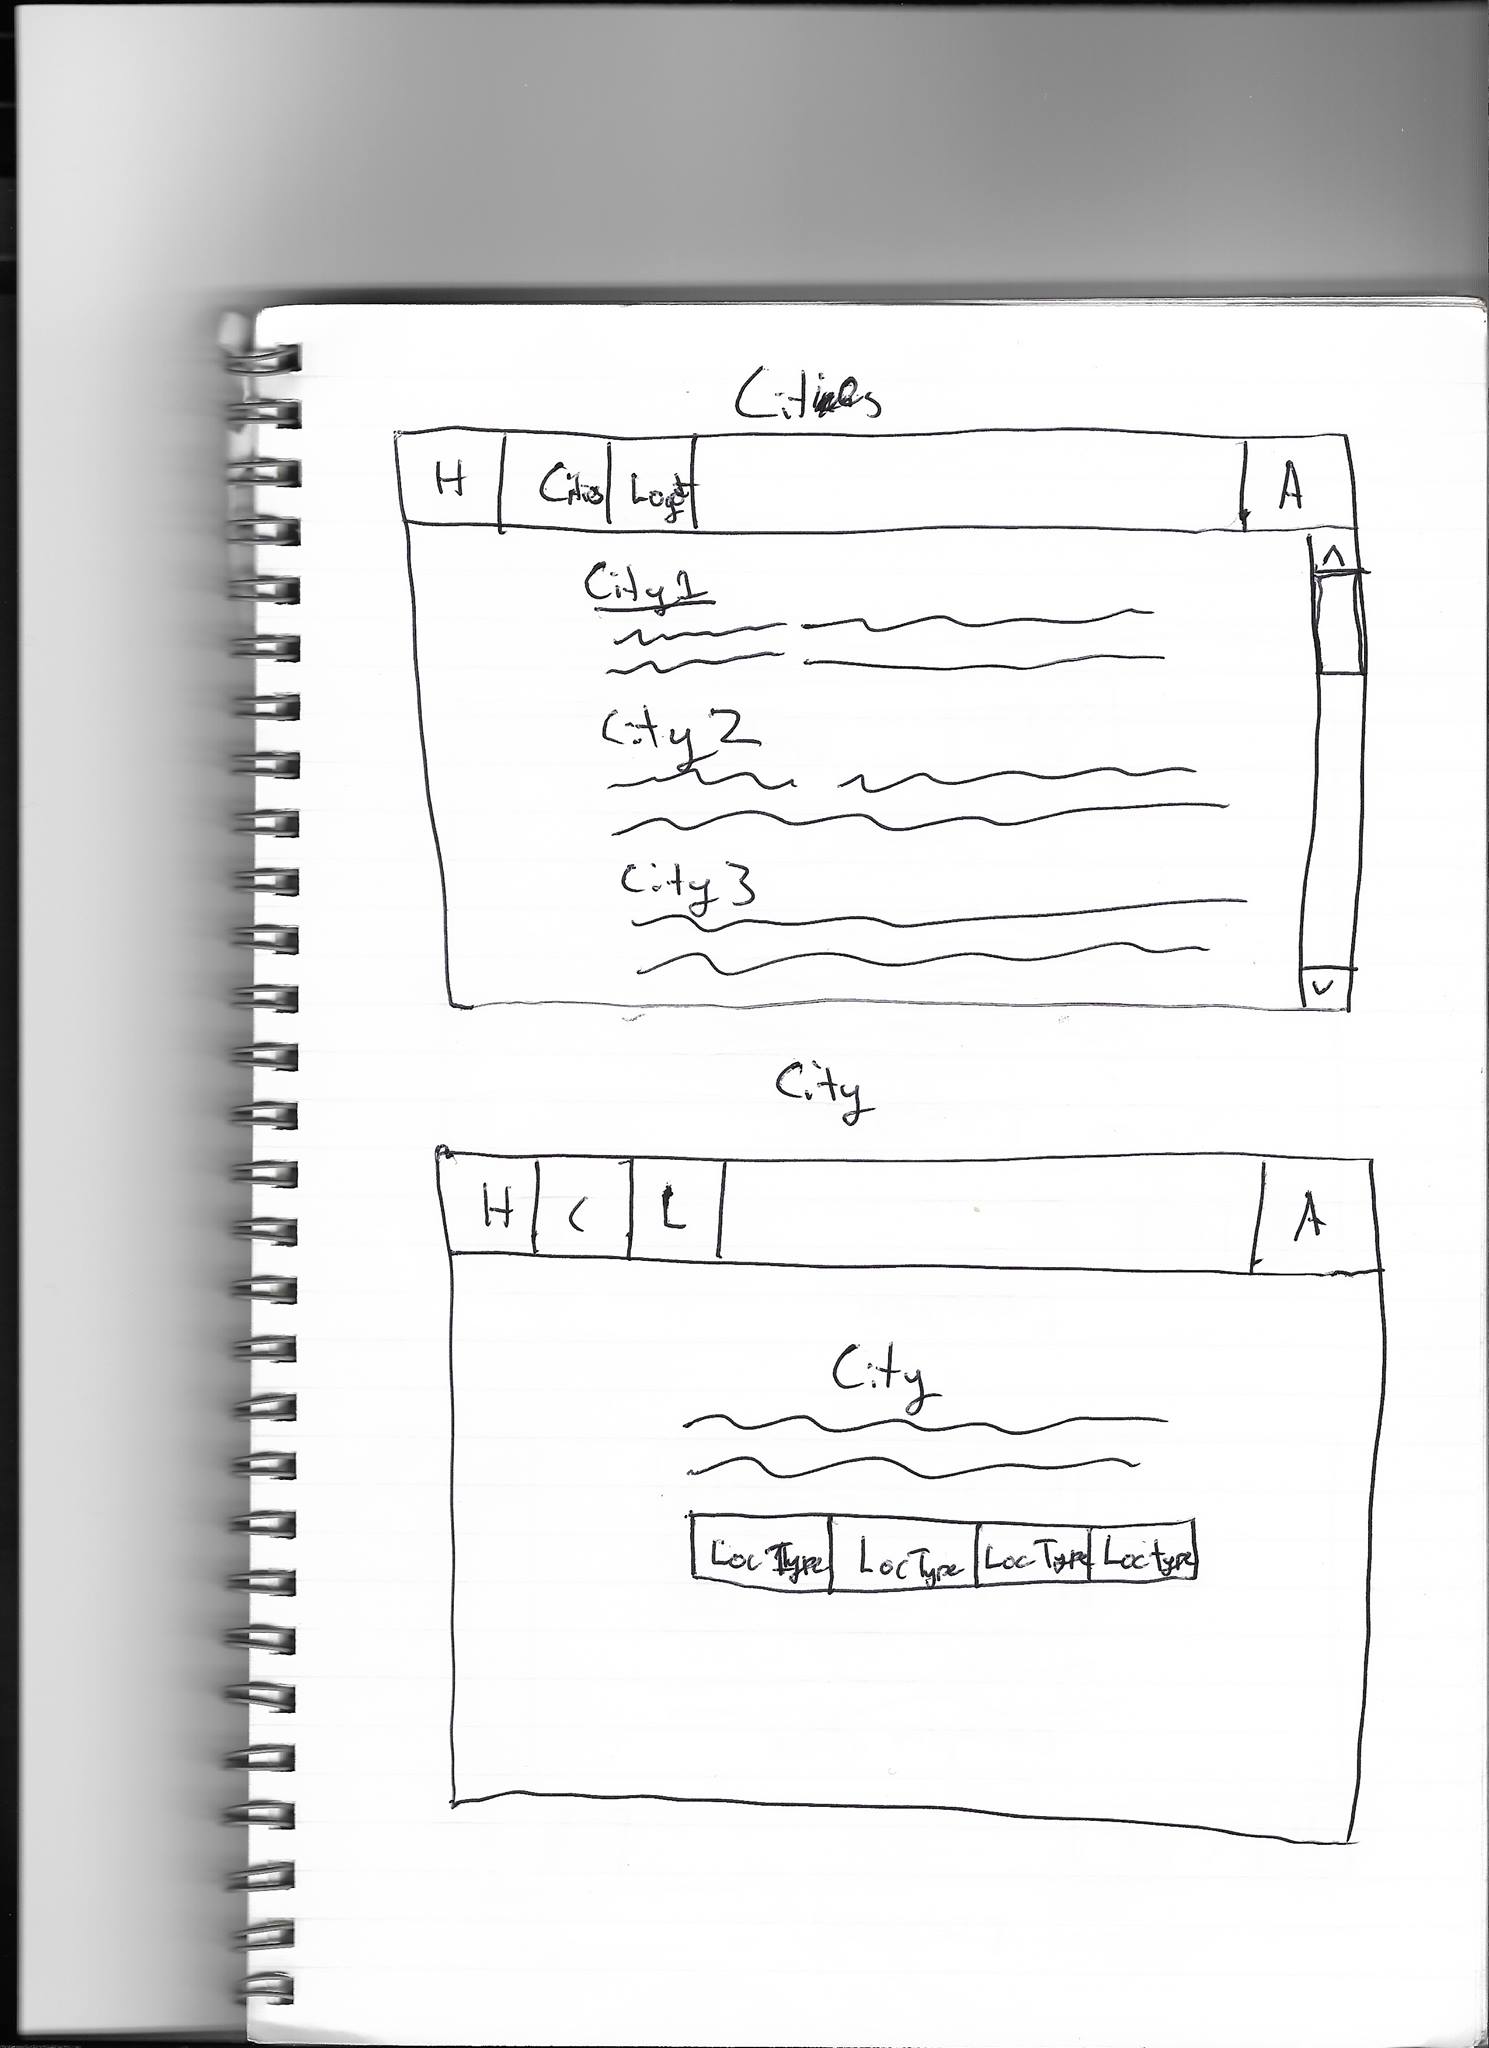 Cities
H Cities Logout A
City 1
City 2
City 3
City
H C L A
City
LocType LocType LocType Loctype